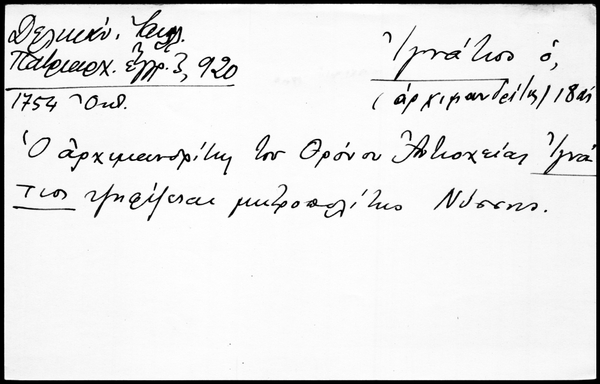 Δελικάν. Ἐκκλ.
Πατριαρχ. ἔγγρ. 3, 920
1754 Ὀκτ.
Ἰγνάτιος ὁ,
(ἀρχιμανδρίτης) 18ος
Ὁ ἀρχιμανδρίτης τοῦ Θρόνου Ἀντιοχείας Ἰγνά
τιος ψηφίζεται μητροπολίτης Νύσσης.